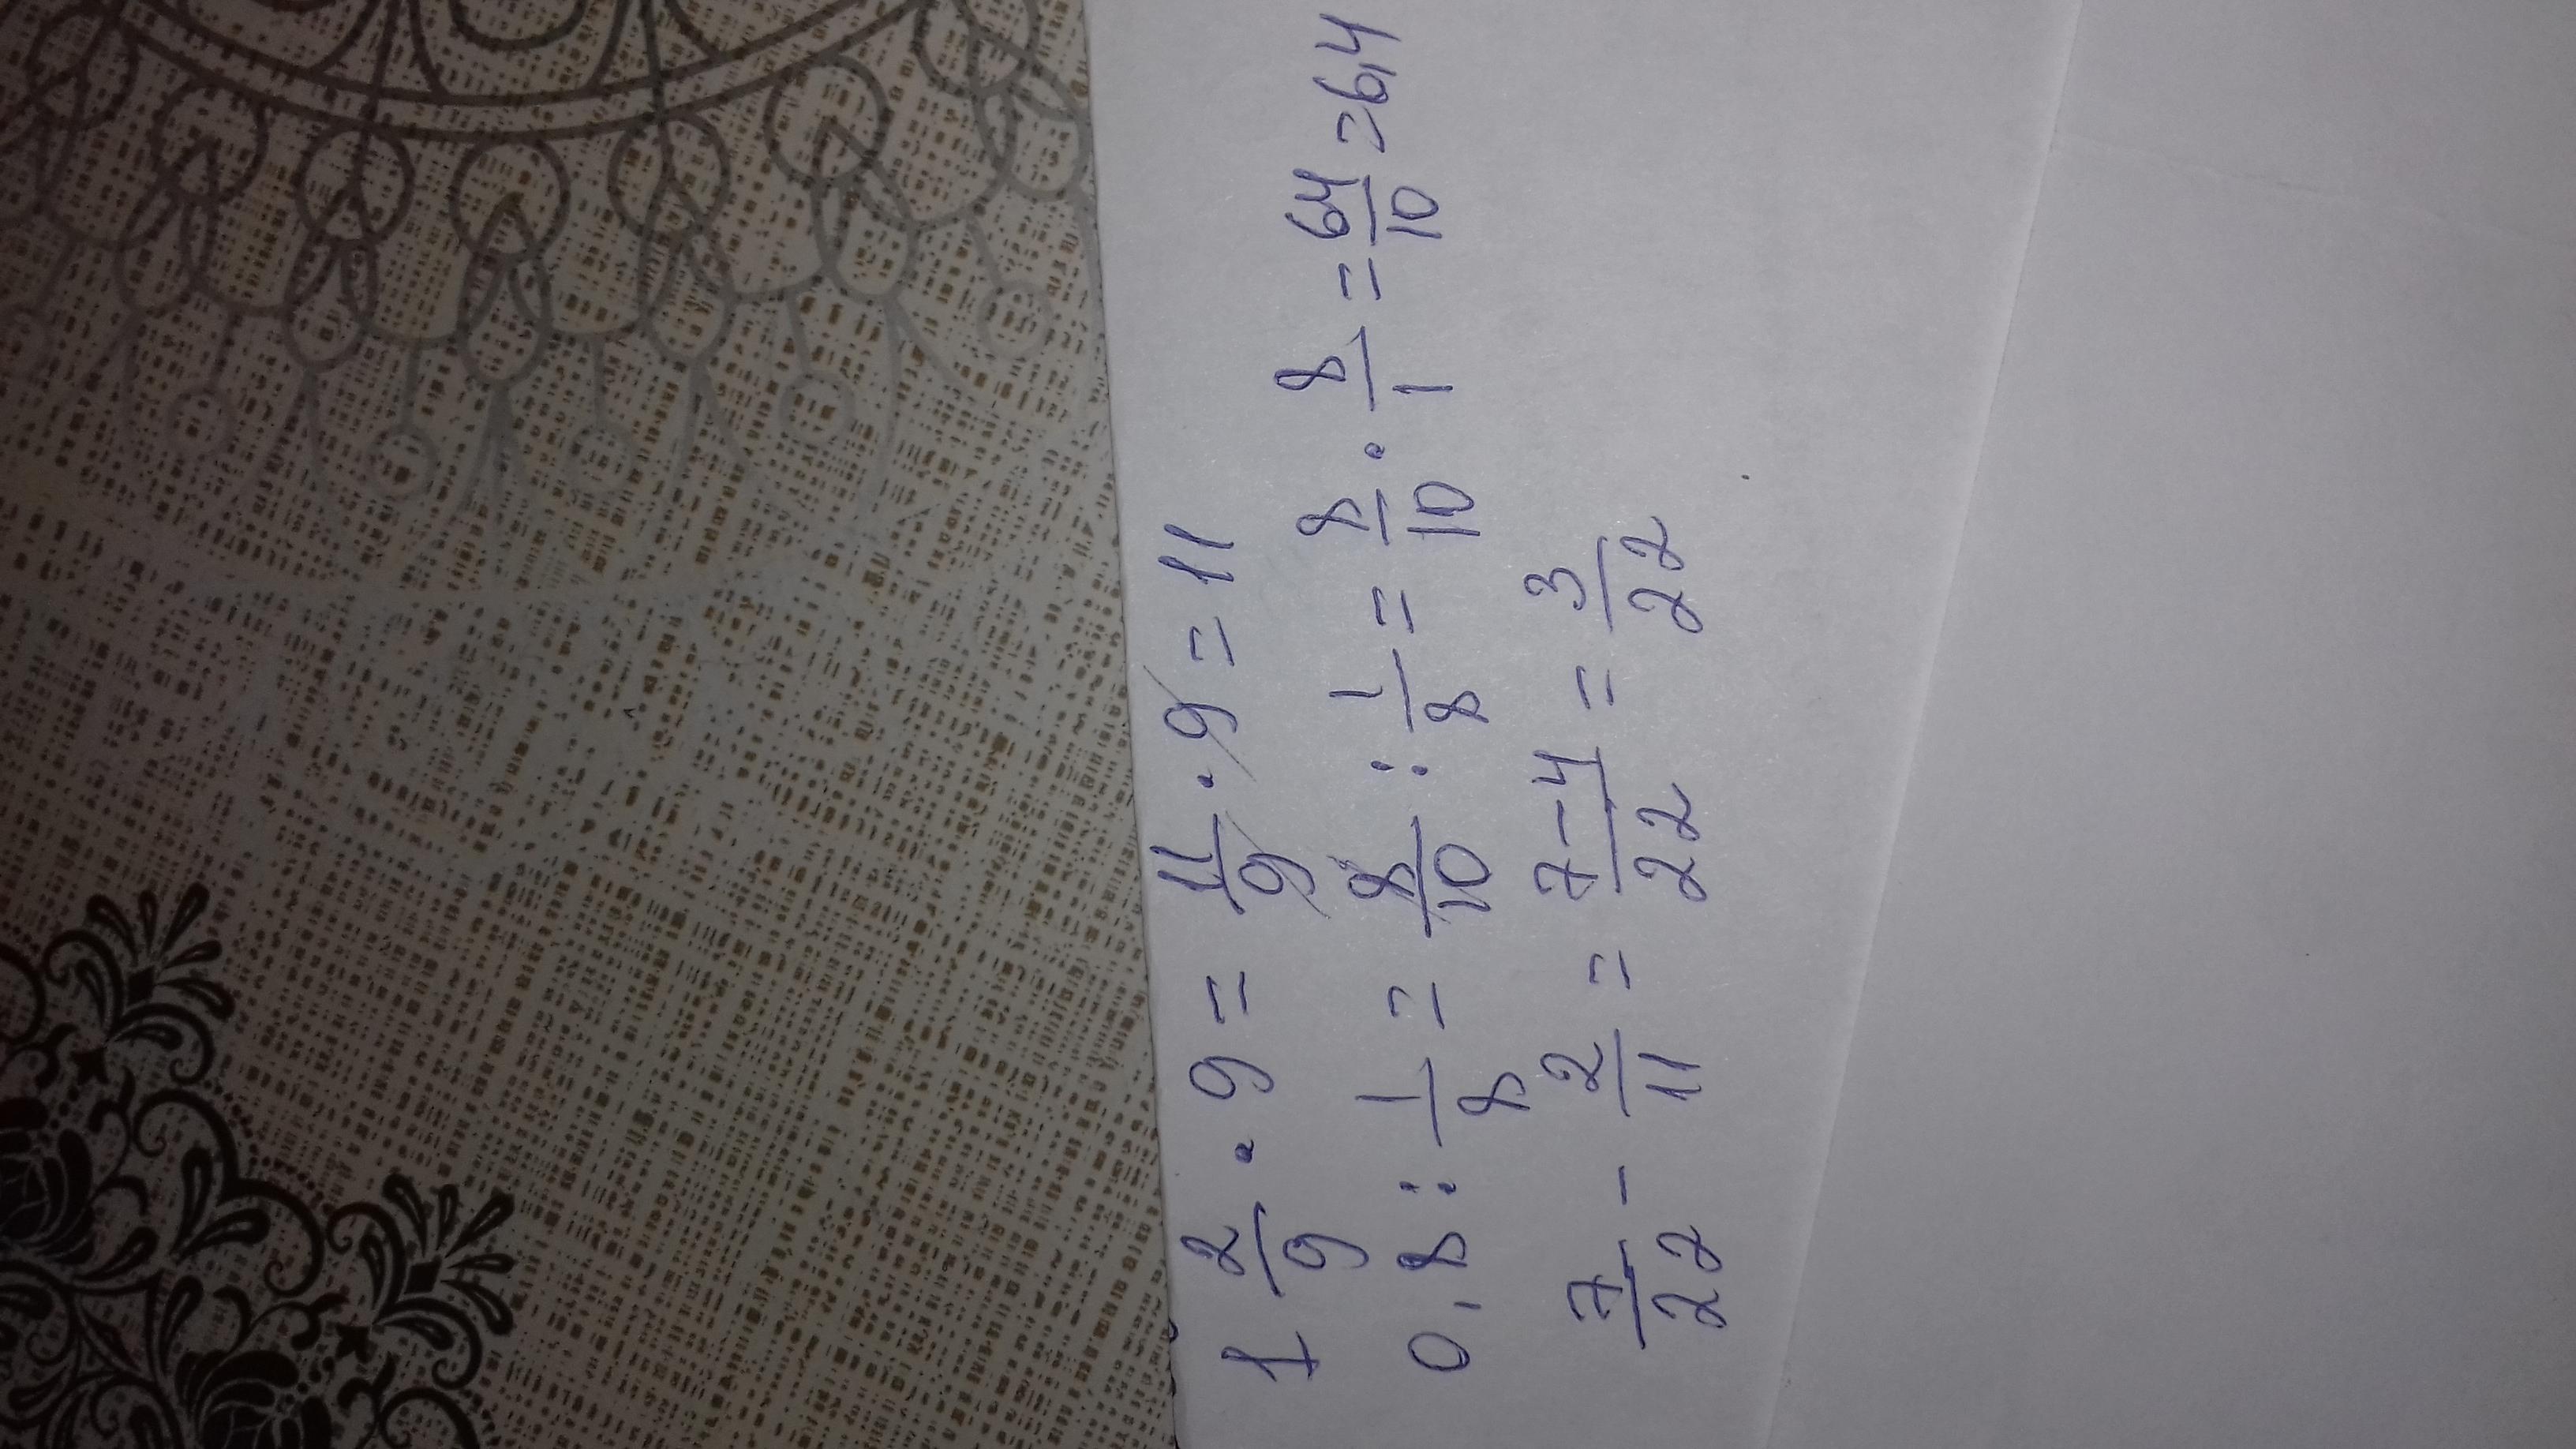 1 2/9 · 9 = 11/9 · 9 = 11
0,8 : 1/8 = 8/10 : 1/8 = 8/10 · 8/1 = 64/10 = 6,4
7/22 - 2/11 = 7-4/22 = 3/22